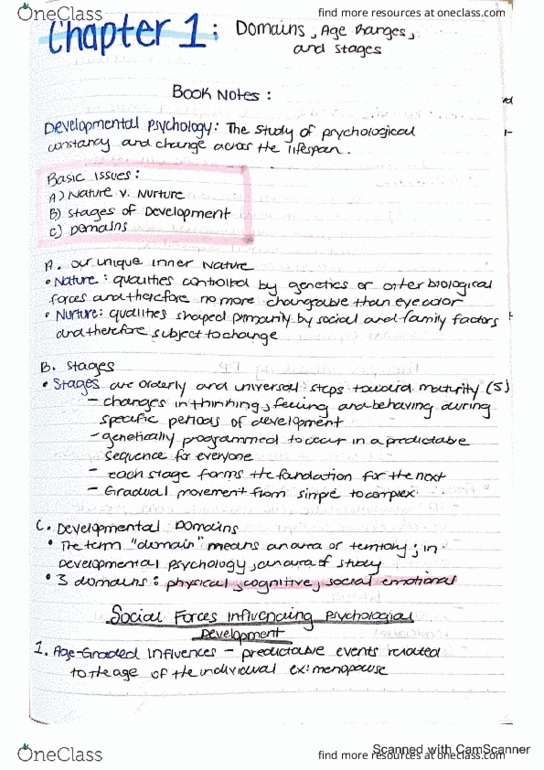 OneClass
find more resources at oneclass.com
find more resources at oneclass.com
Chapter 1: Domains, Age Ranges,
and Stages
Book Notes:
Developmental Psychology: The study of psychological
constancy and change across the lifespan.
Basic Issues:
A) Nature v. Nurture
B) Stages of Development
C) Domains
A. Our unique inner Nature
• Nature: qualities controlled by genetics or other biological
forces and therefore no more changeable than eye color
• Nurture: qualities shaped primarily by social and family factors
and therefore subject to change
B. Stages
• Stages are orderly and universal steps toward maturity (5)
- changes in thinking, feeling and behaving during
specific periods of development
- genetically programmed to occur in a predictable
sequence for everyone
- each stage forms the foundation for the next
- Gradual movement from simple to complex
C. Developmental Domains
• The term "domain" means an area or territory; in
Developmental psychology, an area of study
• 3 domains: physical, cognitive, social emotional
Social Forces Influencing Psychological
Development
1. Age-Graded Influences - predictable events related
to the age of the individual ex: menopause
Scanned with CamScanner
OneClass
find more resources at oneclass.com